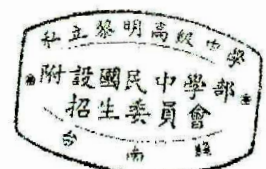 私立黎明高級中學
附設國民中學部
招生委員會
台南縣